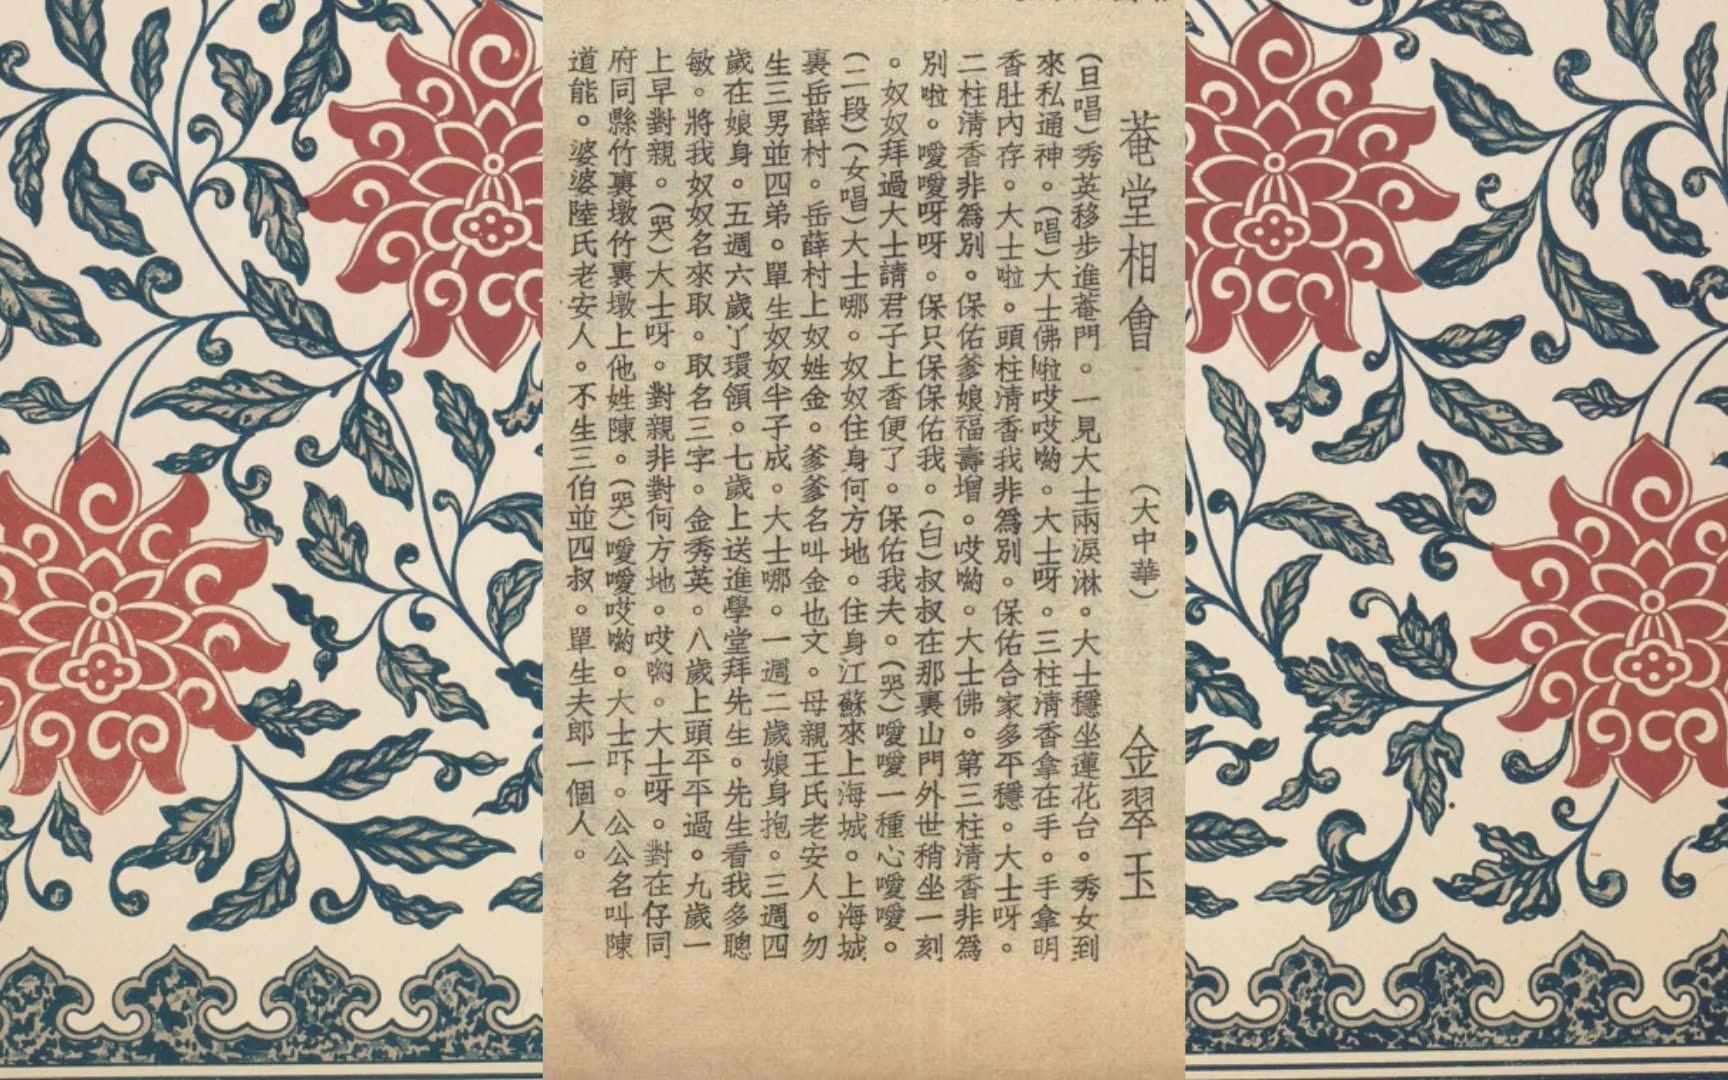 菴堂相會 (大中華) 金翠玉
(旦唱)秀英移步進菴門。一見大士兩淚淋。大士穩坐蓮花台。秀女到
來私通神。(唱)大士佛啦哎哎喲。大士呀。三柱清香拿在手。手拿明
香肚內存。大士啦。頭柱清香我非爲別。保佑合家多平穩。大士呀。
二柱清香非為別。保佑爹娘福壽增。哎喲。大士佛。第三柱清香非為
別啦。噯噯呀呀。保只保保佑我。(白)叔叔在那裏山門外世稍坐一刻
。奴奴拜過大士請君子上香便了。保佑我夫。(哭)噯噯一種心噯噯。
(二段)(女唱)大士哪。奴奴住身何方地。住身江蘇來上海城。上海城
裏岳薛村。岳薛村上奴姓金。爹爹名叫金也文。母親王氏老安人。勿
生三男並四弟。單生奴奴半子成。大士哪。一週二歲娘身抱。三週四
歲在娘身。五週六歲丫環領。七歲上送進學堂拜先生。先生看我多聰
敏。將我奴奴名來取。取名三字。金秀英。八歲上頭平平過。九歲一
上早對親。(哭)大士呀。對親非對何方地。哎喲。大士呀。對在仔同
府同縣竹裏墩竹裏墩上他姓陳。(哭)噯噯哎喲。大士吓。公公名叫陳
道能。婆婆陸氏老安人。不生三伯並四叔。單生夫郎一個人。